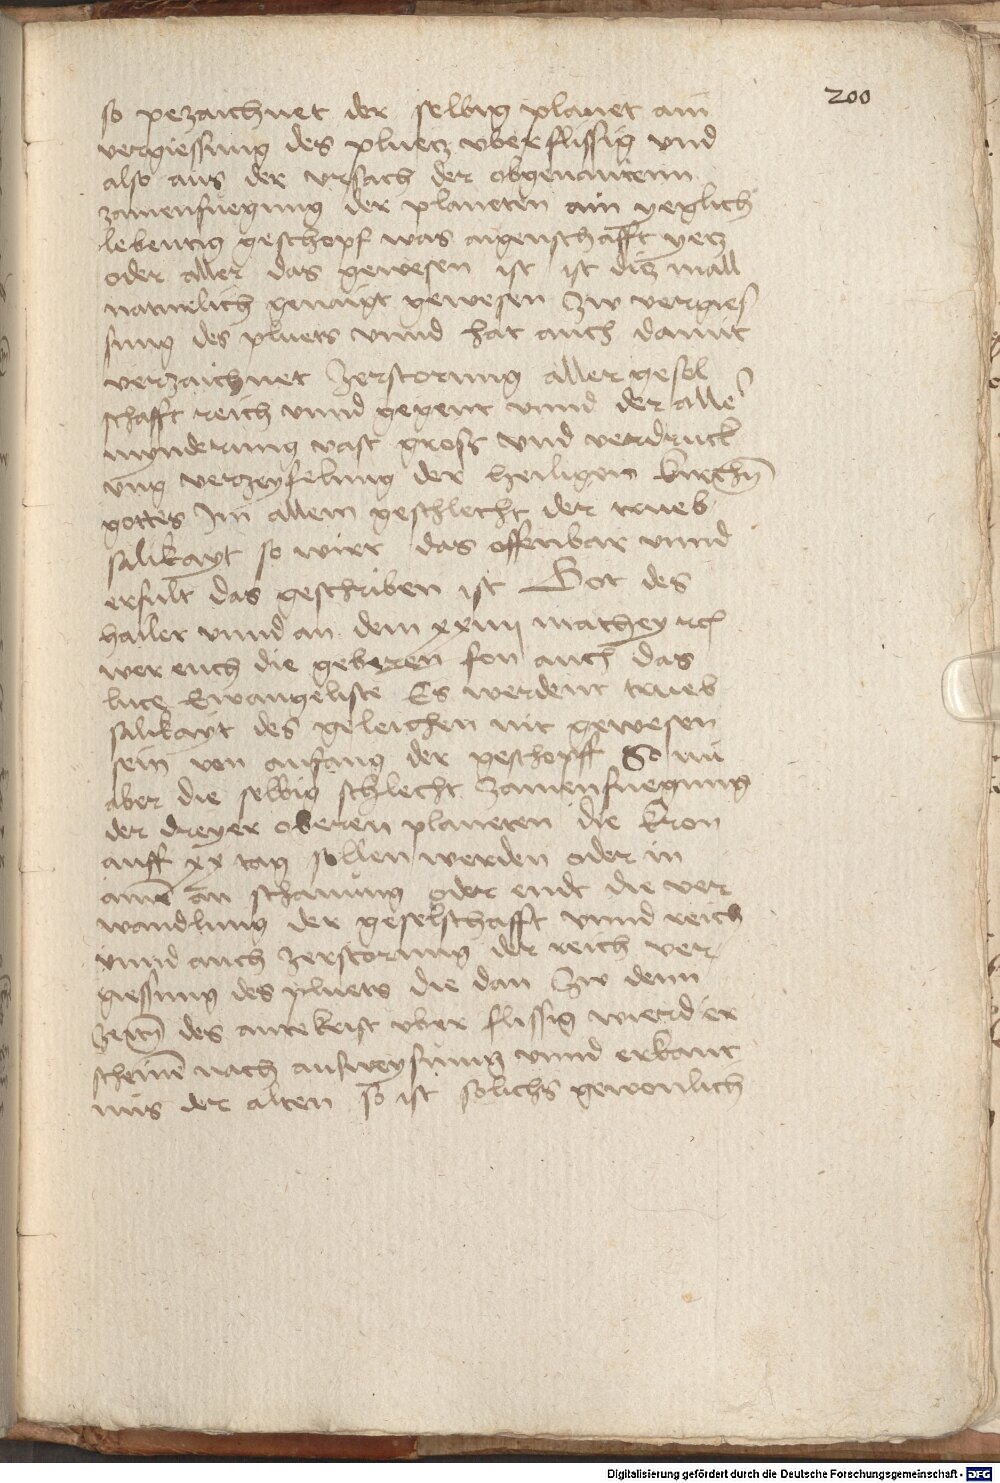 200
so pezaichnet der selbig planet ain
vergiessung des pluetz vberflissig vnd
also aus der vrsach der obgenantenn
zamenfuegung der planeten ain yeglich
lebentig geschopf was aigenschafft yetz
oder aller das gewesen ist ist diz mall
naturlich genaigt gewesen Zw vergies
sung des pluets vnnd hat auch damit
verzaichnet Zerstorung aller gesel
schafft reich vnnd gegent vnnd der alle
mynderung vast gross vnd verdruck
ung verzeyfelung der heiligen kirchn̄
gottes Im allem geschlecht der trueb
salikayt so wirt das offenbar vnnd
erfult das geschriben ist Got des
hailer vnnd an dem xxiiii mathey
wer euch die geberen son auch das
luce Ewangeliste Es werdent trueb
salikayt des geleichen nit gewesen
sein von anfang der geschopff So nu
aber die selbig schlecht Zamenfuegung
der dreyer oberen planeten die kron
auff xx tag sollen werden oder in
an schauung oder endt die ver
wandlung der geselschafft vnnd reich
vnnd auch Zerstorung der reich ver
giessung des pluets die dan Zw denn
Zeitn̄ des antekrist vber flissig wierd er
scheinē nach ausweysung vnnd erkant
nus der alten so ist solichs gewonlich
Digitalisierung gefördert durch die Deutsche Forschungsgemeinschaft - DFG